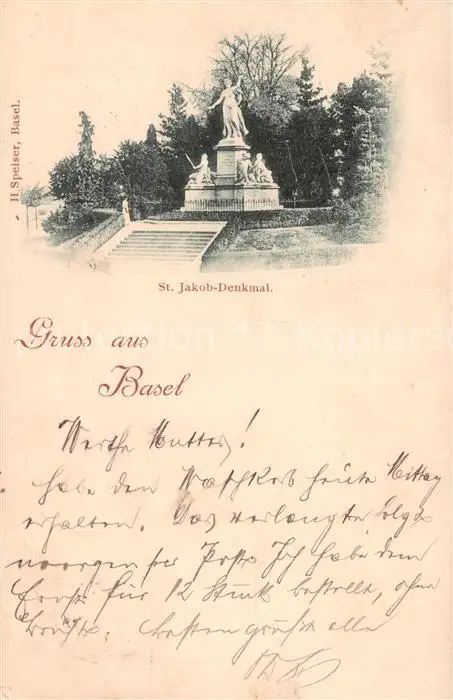 H. Speiser, Basel.
St. Jakob-Denkmal.
Gruss aus
Basel
Werthe Mutter!
habe den Waschkorb heute Mittag
erhalten. Das verlangte folgt
morgen per Post. Ich habe dem
Ernst für 12 Stück bestellt, ohne
Besten grüsst alle